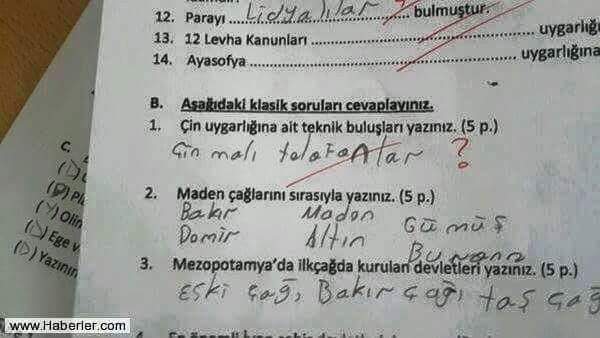 12. Parayı ....Lidyalılar.... bulmuştur.
13. 12 Levha Kanunları .................... uygarlığı
14. Ayasofya .................... uygarlığına
B. Aşağıdaki klasik soruları cevaplayınız.
1. Çin uygarlığına ait teknik buluşları yazınız. (5 p.)
Çin malı talafanlar ?
2. Maden çağlarını sırasıyla yazınız. (5 p.)
Bakır Madan Gümüş
Domir Altın
3. Mezopotamya'da ilkçağda kurulan devletleri yazınız. (5 p.)
Eski çağ, Bakır çağı taş çağ
C.
(D) Pl
(Y) Olin
Ege v
(D) Yazının
www.Haberler.com